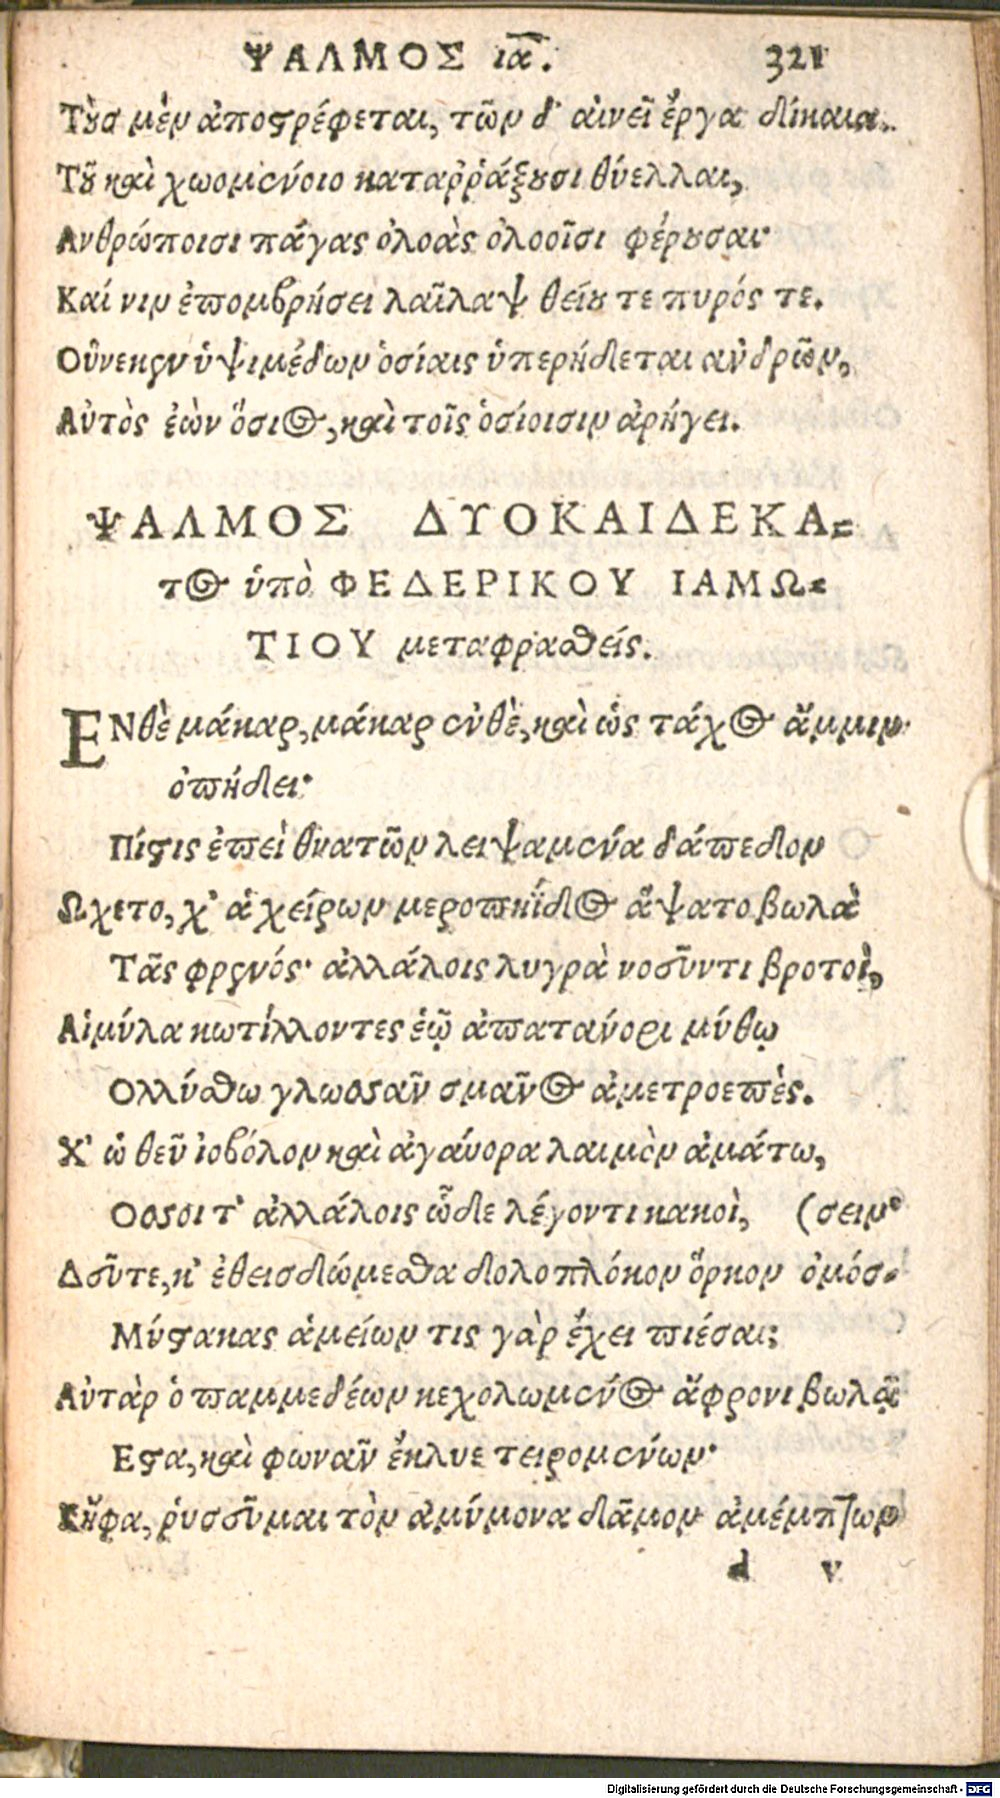 ΨΑΛΜΟΣ ια. 321
Τοὺσ μὲν ἀποστρέφεται, τῶν δ' αἰνεῖ ἔργα δίκαια.
Τοῦ καὶ χωομένοιο καταῤῥάξουσι θύελλαι,
Ανθρώποισι πάγας ὀλοὰς ὀλοοῖσι φέρουσαι·
Καί νιν ἐπομβρήσει λαῖλαψ θείου τε πυρός τε.
Οὕνεκεν ὑψιμέδων ὁσίαις ὑπερήδεται ἀνδρῶν,
Αὐτὸς ἐὼν ὅσιος, καὶ τοῖς ὁσίοισιν ἀρήγει.
ΨΑΛΜΟΣ ΔΥΟΚΑΙΔΕΚΑ=
τος ὑπὸ ΦΕΔΕΡΙΚΟΥ ΙΑΜΩ=
ΤΙΟΥ μεταφρασθείς.
ΕΝθὲ μάκαρ, μάκαρ ἐνθὲ, καὶ ὡς τάχος ἄμμιν
ὀπήδει·
Πίστις ἐπεὶ θνατῶν λειψαμένα δάπεδον
Ωχετο, χ' ἁ χείρων μεροπηΐδος ἅψατο βωλὰ
Τᾶς φρενός· ἀλλάλοις λυγρὰ νοεῦντι βροτοὶ,
Αἱμύλα κωτίλλοντες ἑῷ ἀπατάνορι μύθῳ
Ολλύσθω γλωσσᾶν σμᾶνος ἀμετροεπὲς.
Χ' ὠ θεῦ ἰοβόλον καὶ ἀγάνορα λαιμὸν ἀμάτω,
Οσσοι τ' ἀλλάλοις ὧδε λέγοντι κακοὶ, (σειν·
Δεῦτε, κ' ἐθεισδώμεθα δολοπλόκον ὅρκον ὀμόσ=
Μύστακας ἁμείων τις γὰρ ἔχει πιέσαι;
Αὐτὰρ ὁ παμμεδέων κεχολωμένος ἄφρονι βωλᾷ
Εστα, καὶ φωνᾶν ἔκλυε τειρομένων·
Κἤφα, ῥυσσεῦμαι τὸν ἀμύμονα δᾶμον ἀμέμπτων
d v
Digitalisierung gefördert durch die Deutsche Forschungsgemeinschaft - DFG